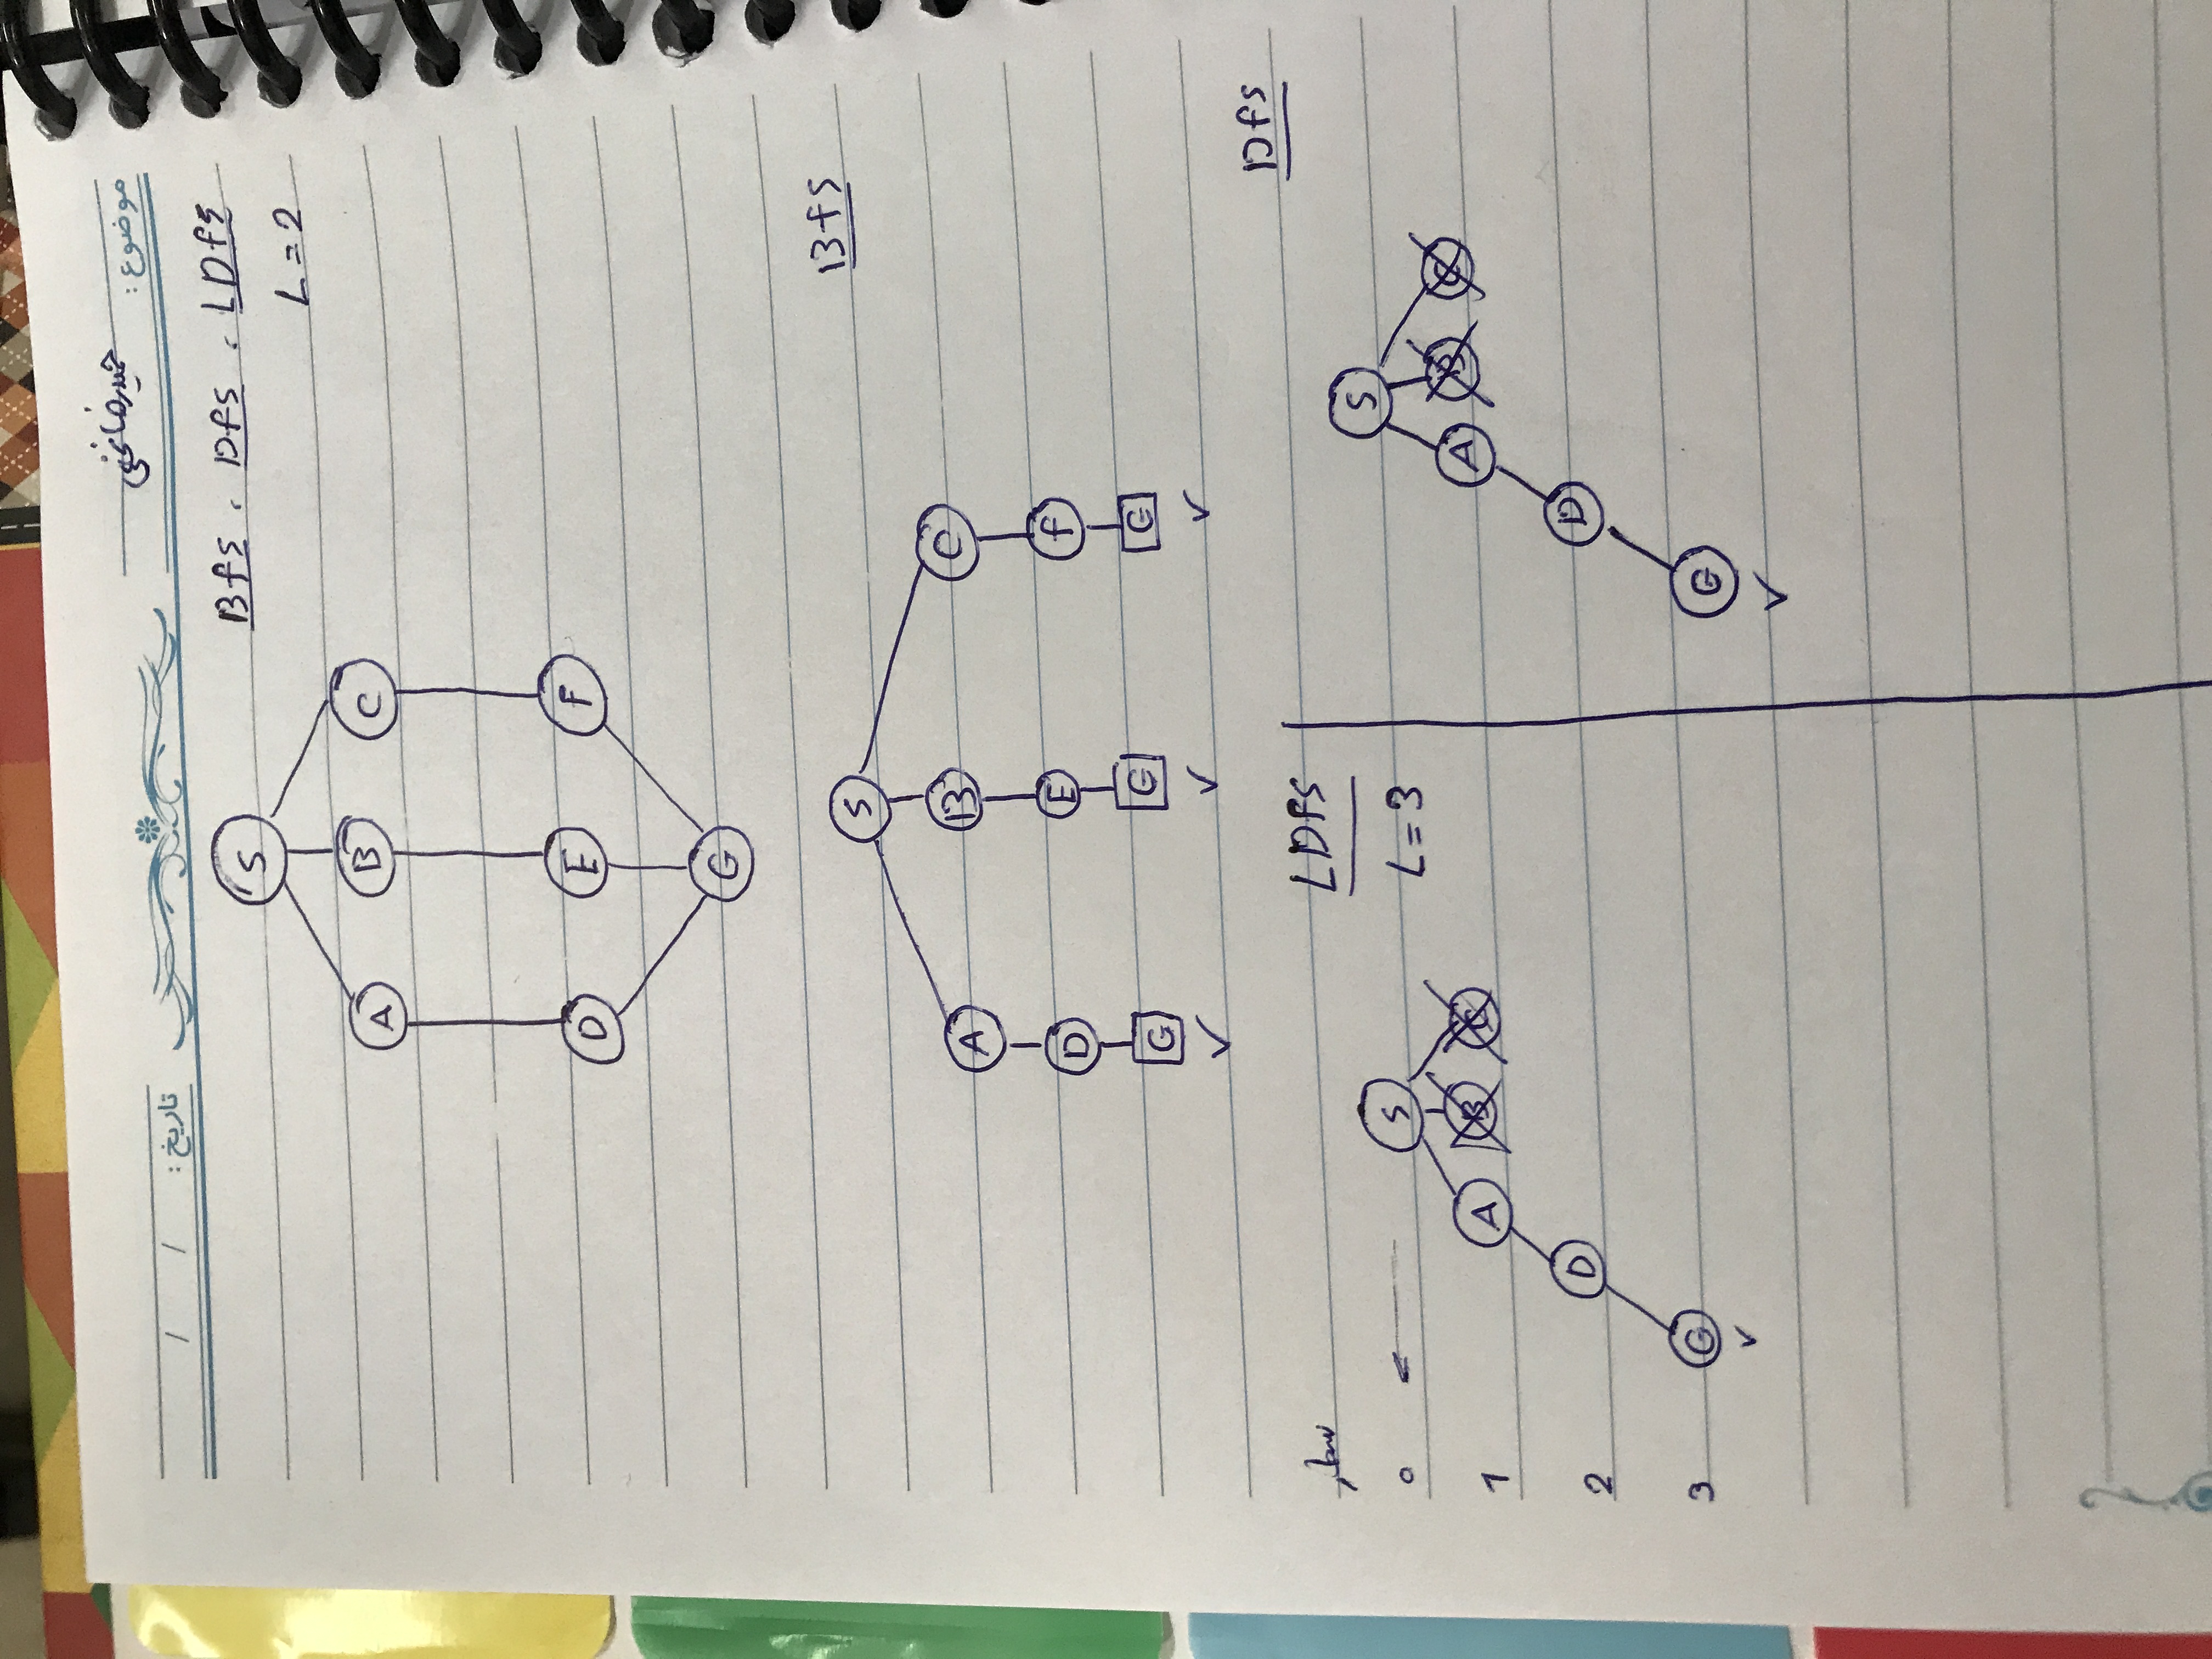 موضوع: حمیدرضا نخعی
تاریخ: / /
Bfs , Dfs , LDfs
L = 2
S
A B C
D E F
G
Bfs
S
A B C
D E f
G G G
✓ ✓ ✓
Dfs
S
A B C
D
G
✓
LDfs
L = 3
سطر
0 ← S
1 A B C
2 D
3 G
✓